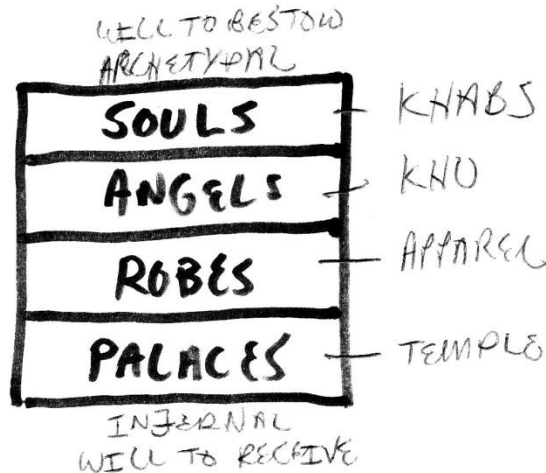 WILL TO BESTOW
ARCHETYPAL
SOULS — KHABS
ANGELS — KHU
ROBES — APPAREL
PALACES — TEMPLE
INFERNAL
WILL TO RECEIVE